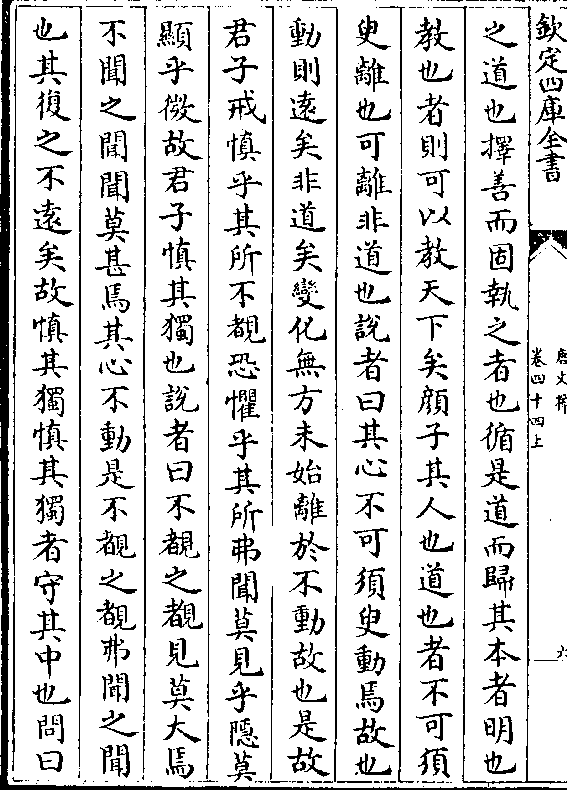 欽定四庫全書
唐文粹
卷四十四上
六
之道也擇善而固執之者也循是道而歸其本者明也
教也者則可以教天下矣顔子其人也道也者不可須
臾離也可離非道也說者曰其心不可須臾動焉故也
動則遠矣非道矣變化無方未始離於不動故也是故
君子戒慎乎其所不覩恐懼乎其所弗聞莫見乎隱莫
顯乎微故君子慎其獨也說者曰不覩之覩見莫大焉
不聞之聞聞莫甚焉其心不動是不覩之覩弗聞之聞
也其復之不遠矣故慎其獨慎其獨者守其中也問曰